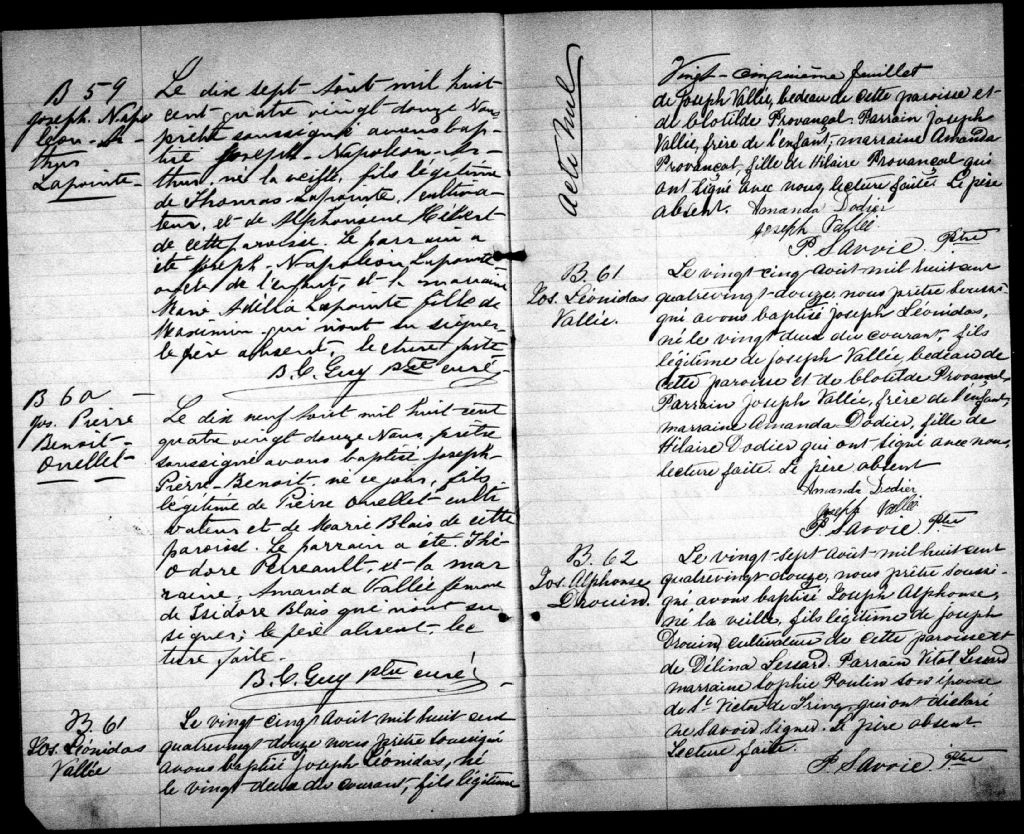 B 59
Joseph. Napo
léon. Ar
thur
Lapointe
Le dix sept Août mil huit
cent quatre vingt douze Nous
prêtre soussigné avons bap-
tisé Joseph-Napoléon-Ar-
thur, né la veille, fils légitime
de Thomas Lapointe, cultiva-
teur, et de Alphonsene Hébert
de cette paroisse. Le parrain a
été Joseph-Napoléon Lapointe
oncle de l'enfant, et la marraine
Marie Adélia Lapointe fille de
Maximin qui n'ont su signer
le père absent, lecture faite
B. C. Guy ptre curé
B 60
Jos. Pierre
Benoit
Ouellet
Le dix neuf Août mil huit cent
quatre vingt douze Nous, prêtre
soussigné avons baptisé Joseph-
Pierre-Benoit, né ce jour, fils
légitime de Pierre Ouellet culti
vateur et de Marie Blais de cette
paroisse. Le parrain a été Thé-
odore Perreault et la mar
raine, Amanda Vallée femme
de Isidore Blais qui n'ont su
signer; le père absent, lec
ture faite.
B. C. Guy ptre curé
B. 61
Jos. Léonidas
Vallée
Le vingt cinq Août mil huit cent
quatrevingt douze nous prêtre soussigné
avons baptisé Joseph Léonidas, né
le vingt deux du courant, fils légitime
acte nul
Vingt-cinquième feuillet
de Joseph Vallée, bedeau de cette paroisse et
de Clotilde Provançal. Parrain Joseph
Vallée, frère de l'enfant; marraine Amanda
Provançal, fille de Hilaire Provançal qui
ont signé avec nous, lecture faite. Le père
absent. Amanda Dodier
Joseph Vallée
P. Savoie Ptre
B. 61
Jos. Léonidas
Vallée.
Le vingt cinq Août mil huit cent
quatrevingt-douze, nous prêtre soussi-
gné avons baptisé Joseph Léonidas,
né le vingt deux du courant, fils
légitime de Joseph Vallée, bedeau de
cette paroisse et de Clotilde Provançal,
Parrain Joseph Vallée, frère de l'enfant,
marraine Amanda Dodier, fille de
Hilaire Dodier qui ont signé avec nous,
lecture faite. Le père absent
Amanda Dodier
Joseph Vallée
P. Savoie Ptre
B. 62
Jos. Alphonse
Drouin.
Le vingt-sept Août mil huit cent
quatrevingt douze, nous prêtre soussi-
gné avons baptisé Joseph Alphonse,
né la veille, fils légitime de Joseph
Drouin, cultivateur de cette paroisse et
de Délina Lessard. Parrain Vital Lessard
marraine Sophie Poulin son épouse
de St Victor de Tring, qui ont déclaré
ne savoir signer. Le père absent
Lecture faite.
P. Savoie ptre